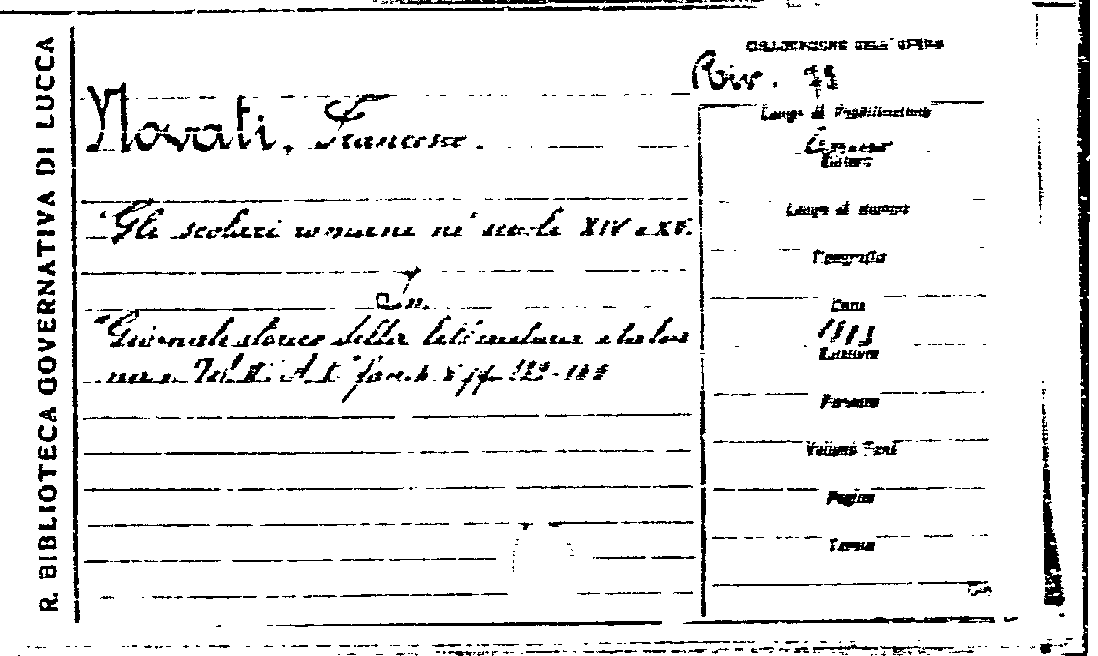 R. BIBLIOTECA GOVERNATIVA DI LUCCA
COLLOCAZIONE DELL'OPERA
Riv.
Novati, Francesco.
"Gli scolari romani ne' secoli XIV e XV.
In
"Giornale storico della letteratura italia
na". Vol. II. A. I. fasc.
Luogo di Pubblicazione
Editore
Luogo di stampa
Tipografia
Data
Edizione
Formato
Volumi
Pagine
Tavole